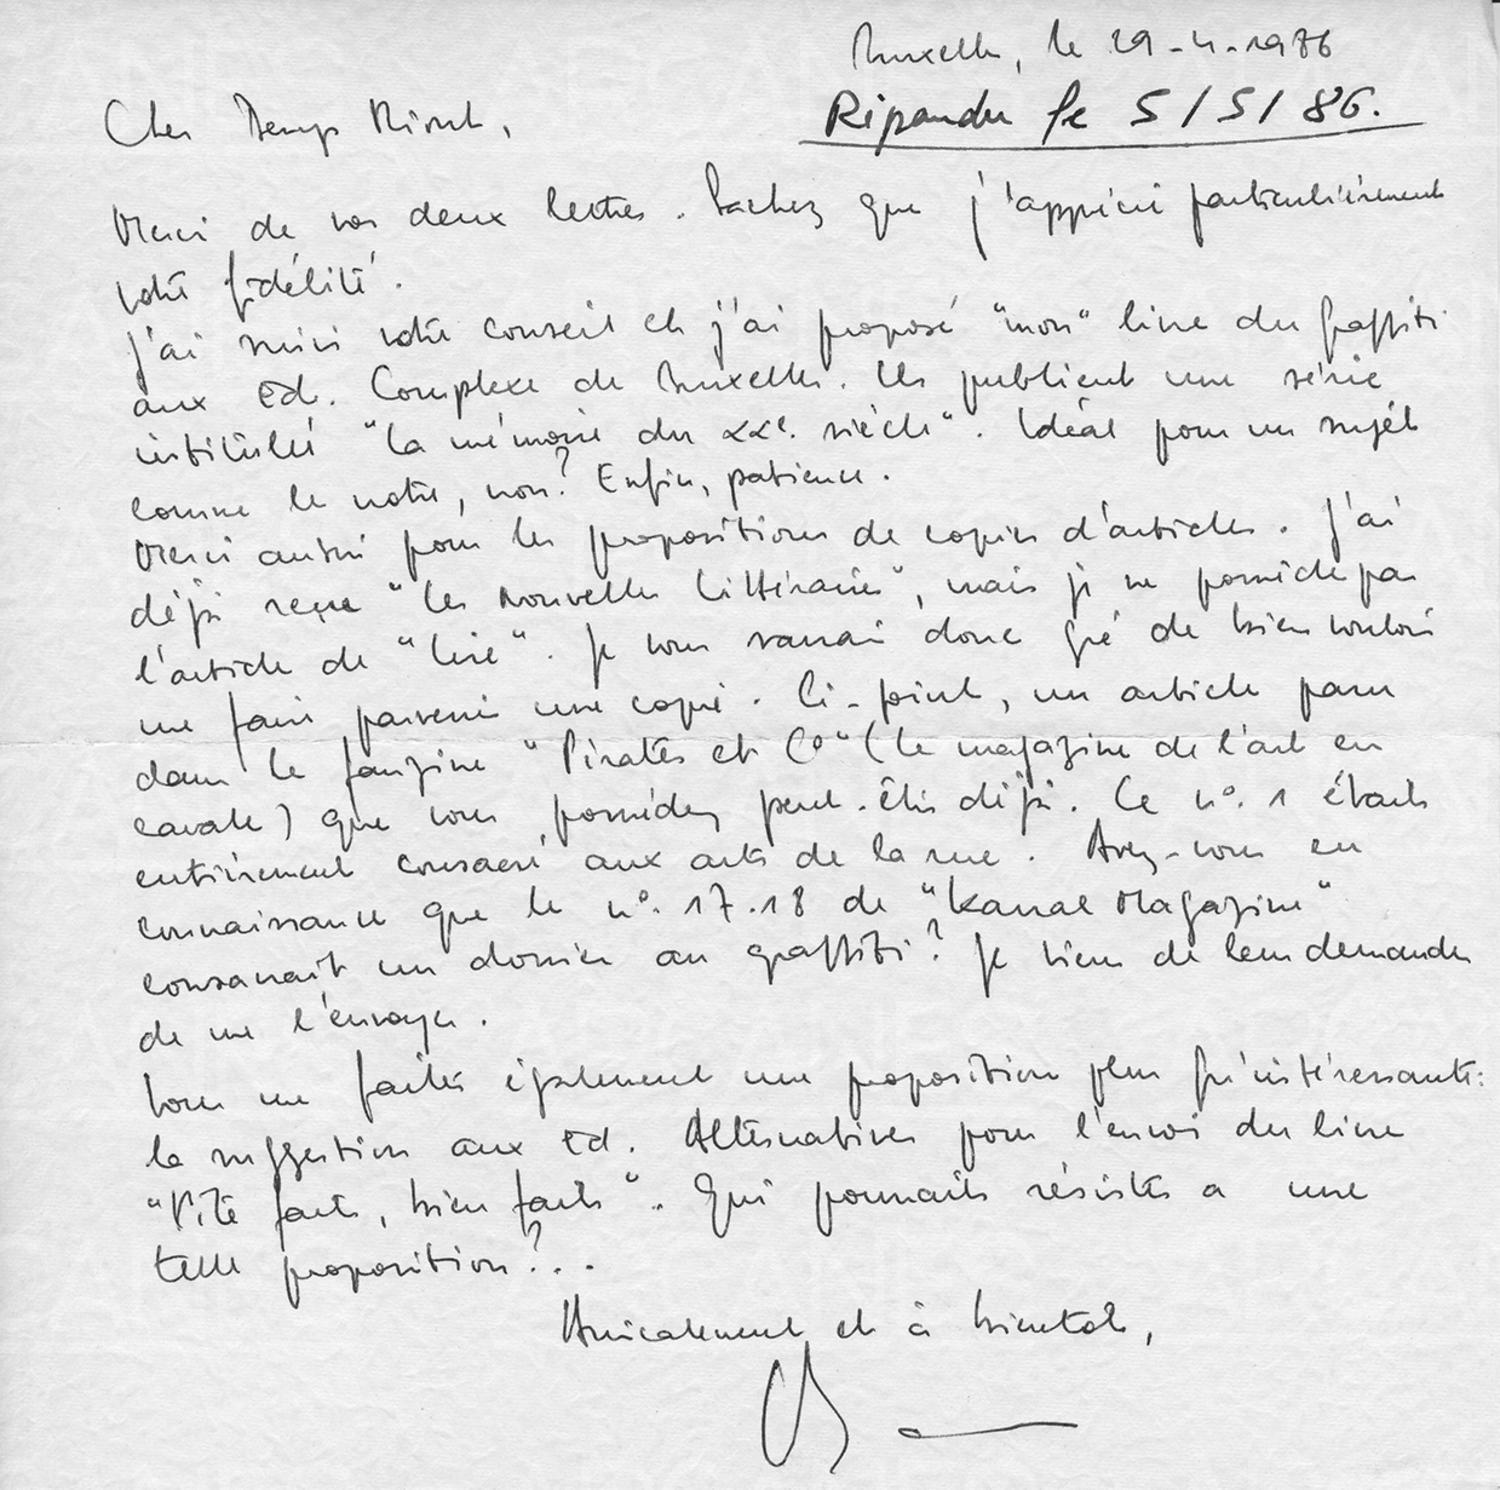 Bruxelles, le 29-4-1986
Répondu le 5/5/86.
Cher
Merci de vos deux lettres. Sachez que j'apprécie particulièrement
votre fidélité.
J'ai suivi votre conseil et j'ai proposé "mon" livre du graffiti
aux Ed. Complexe de Bruxelles. Ils publient une série
intitulée "La mémoire du XXe. siècle". Idéal pour un sujet
comme le notre, non? Enfin, patience.
Merci aussi pour les propositions de copies d'articles. J'ai
déjà reçu "Les Nouvelles Littéraires", mais je ne possède pas
l'article de "Lire". Je vous saurai donc gré de bien vouloir
me faire parvenir une copie. Ci-joint, un article paru
dans le fanzine "Pirates et Co" (le magazine de l'art en
cavale) que vous possédez peut-être déjà. Ce n°. 1 était
entièrement consacré aux arts de la rue. Avez-vous eu
connaissance que le n°. 17.18 de "Kanal Magazine"
consacrait un dossier au graffiti? Je viens de leur demander
de me l'envoyer.
Vous me faites également une proposition plus qu'intéressante:
la suggestion aux Ed. Alternatives pour l'envoi du livre
"Vite fait, bien fait". Qui pourrait résister a une
telle proposition?..
Amicalement et à bientot,